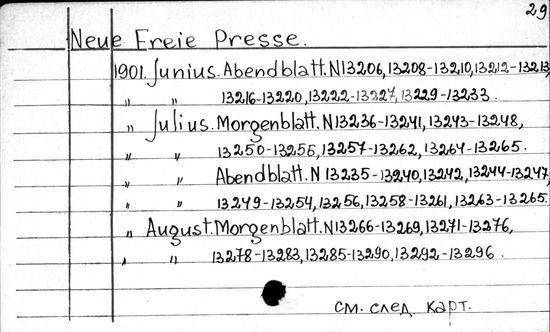 29
Neue Freie Presse.
1901. Junius. Abendblatt. N13206, 13208-13210, 13212-13213,
" " 13216-13220, 13222-13227, 13229-13233.
" Julius. Morgenblatt. N13236-13241, 13243-13248,
" " 13250-13255, 13257-13262, 13264-13265.
" " Abendblatt. N 13235-13240, 13242, 13244-13247,
" " 13249-13254, 13256, 13258-13261, 13263-13265.
" August. Morgenblatt. N13266-13269, 13271-13276,
" " 13278-13283, 13285-13290, 13292-13296.
см. след. карт.